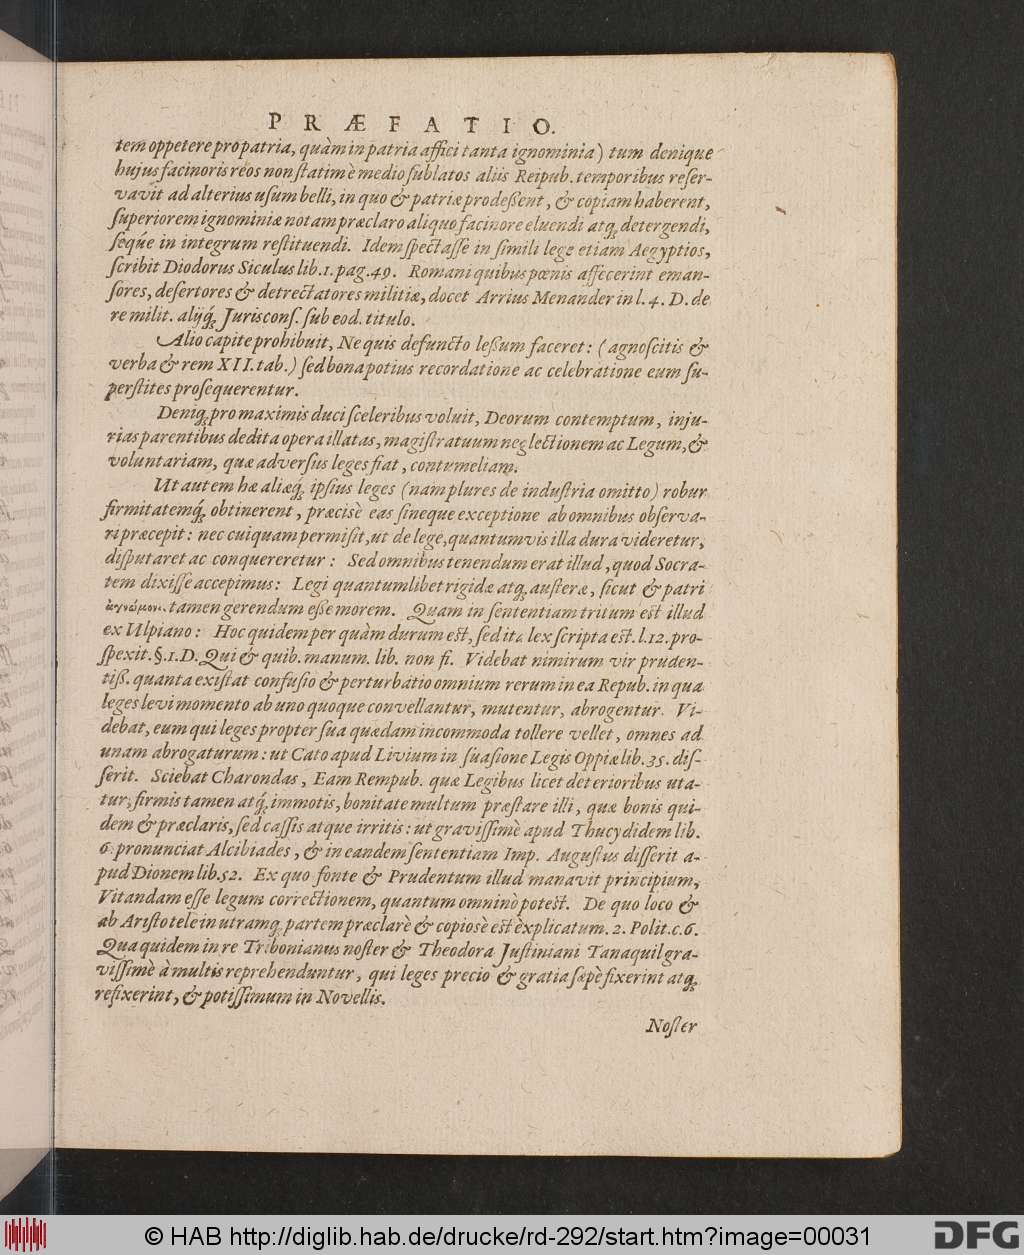 PRÆFATIO.
tem oppetere pro patria, quàm in patria affici tanta ignominia) tum denique
hujus facinoris reos non ſtatim è medio ſublatos aliis Reipub. temporibus reſer-
vavit ad alterius uſum belli, in quo & patriæ prodeßent, & copiam haberent,
ſuperiorem ignominiæ notam præclaro aliquo facinore eluendi atq; detergendi,
ſeque in integrum reſtituendi. Idem ſpectaſſe in ſimili lege etiam Aegyptios,
ſcribit Diodorus Siculus lib. 1. pag. 49. Romani quibus pœnis affecerint eman-
ſores, deſertores & detrectatores militiæ, docet Arrius Menander in l. 4. D. de
re milit. alijq; Juriscons. ſub eod. titulo.
Alio capite prohibuit, Ne quis defuncto leßum faceret: (agnoſcitis &
verba & rem XII. tab.) ſed bona potius recordatione ac celebratione eum ſu-
perſtites proſequerentur.
Deniq; pro maximis duci ſceleribus voluit, Deorum contemptum, inju-
rias parentibus dedita opera illatas, magiſtratuum neglectionem ac Legum, &
voluntariam, quæ adverſus leges fiat, contumeliam.
Ut autem hæ aliæq; ipſius leges (nam plures de induſtria omitto) robur
firmitatemq; obtinerent, præcisè eas ſineque exceptione ab omnibus obſerva-
ri præcepit: nec cuiquam permiſit, ut de lege, quantumvis illa dura videretur,
diſputaret ac conquereretur: Sed omnibus tenendum erat illud, quod Socra-
tem dixiſſe accepimus: Legi quantumlibet rigidæ atq; auſteræ, ſicut & patri
ἀγνώμονι, tamen gerendum eße morem. Quam in ſententiam tritum eſt illud
ex Ulpiano: Hoc quidem per quàm durum eſt, ſed ita lex ſcripta eſt. l. 12. pro-
ſpexit. §. 1. D. Qui & quib. manum. lib. non fi. Videbat nimirum vir pruden-
tiß. quanta exiſtat confuſio & perturbatio omnium rerum in ea Repub. in qua
leges levi momento ab uno quoque convellantur, mutentur, abrogentur. Vi-
debat, eum qui leges propter ſua quædam incommoda tollere vellet, omnes ad
unam abrogaturum: ut Cato apud Livium in ſuaſione Legis Oppiæ lib. 35. diſ-
ſerit. Sciebat Charondas, Eam Rempub. quæ Legibus licet deterioribus uta-
tur, firmis tamen atq; immotis, bonitate multum præſtare illi, quæ bonis qui-
dem & præclaris, ſed caſſis atque irritis: ut graviſſimè apud Thucydidem lib.
6. pronunciat Alcibiades, & in eandem ſententiam Imp. Auguſtus diſſerit a-
pud Dionem lib. 52. Ex quo fonte & Prudentum illud manavit principium,
Vitandam eſſe legum correctionem, quantum omninò poteſt. De quo loco &
ab Ariſtotele in utramq; partem præclarè & copiosè eſt explicatum. 2. Polit. c. 6.
Qua quidem in re Tribonianus noſter & Theodora Juſtiniani Tanaquil gra-
viſſimè à multis reprehenduntur, qui leges precio & gratia ſæpè fixerint atq;
refixerint, & potiſſimum in Novellis.
Noſter
© HAB http://diglib.hab.de/drucke/rd-292/start.htm?image=00031
DFG